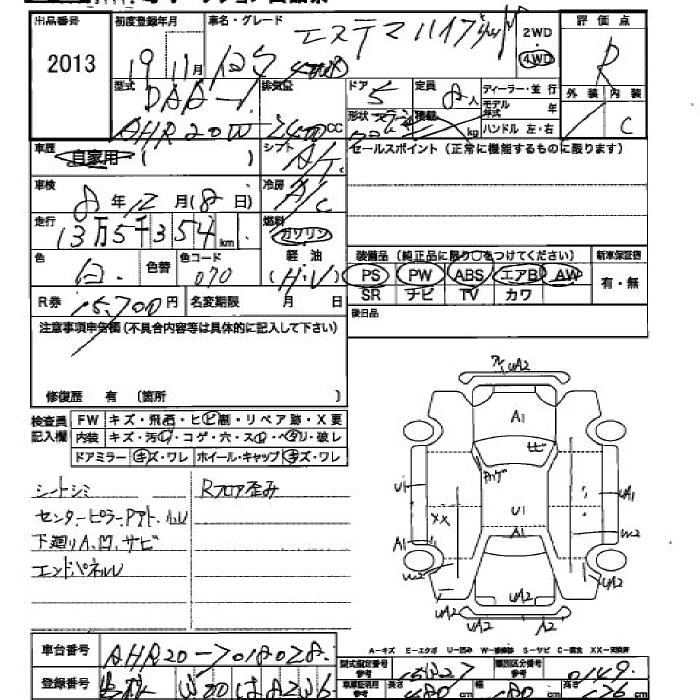 出品番号
2013
初度登録年月
19 11月
車名・グレード
エスティマ ハイブリッド
2WD
4WD
評価点
R
外装 内装
C
型式
DAA-
AHR20W
排気量
2400cc
ドア
5
定員
8人
ディーラー・並行
モデル年式 年
形状
積載 kg
ハンドル 左・右
車歴
自家用 ( )
シフト
AT
セールスポイント (正常に機能するものに限ります)
車検
8年12月(18日)
冷房
A/C
走行
13万5千354km
燃料
ガソリン
軽油
(H.V)
色
白
色替
色コード
070
装備品 (純正品に限り〇をつけてください)
PS PW ABS エアB AW
SR ナビ TV カワ
新車保証書
有・無
R券 15,700円
名変期限 月 日
後日品
注意事項申告欄 (不具合内容等は具体的に記入して下さい)
修復歴 有 〔箇所 〕
検査員記入欄
FW キズ・飛石・ヒビ割・リペア跡・X要
内装 キズ・汚レ・コゲ・穴・スレ・ヘタリ・破レ
ドアミラー キズ・ワレ ホイール・キャップ キズ・ワレ
シートシミ
Rフロア歪み
センターピラーPアト、小U
下廻りA、凹、サビ
エンドパネルU
UA2
A1
ヒビ
U1
U1
A1
XX
UA1
W2
A1
W2
UA2
UA2
UA2
UA2
A2
A-キズ E-エクボ U-凹み W-補修跡 S-サビ C-腐食 XX-交換済
車台番号
AHR20-7018028
型式指定番号
参考
15427
類別区分番号
参考
0149
登録番号
車庫証明用
参考
長さ
480cm
幅
180cm
高さ
176cm